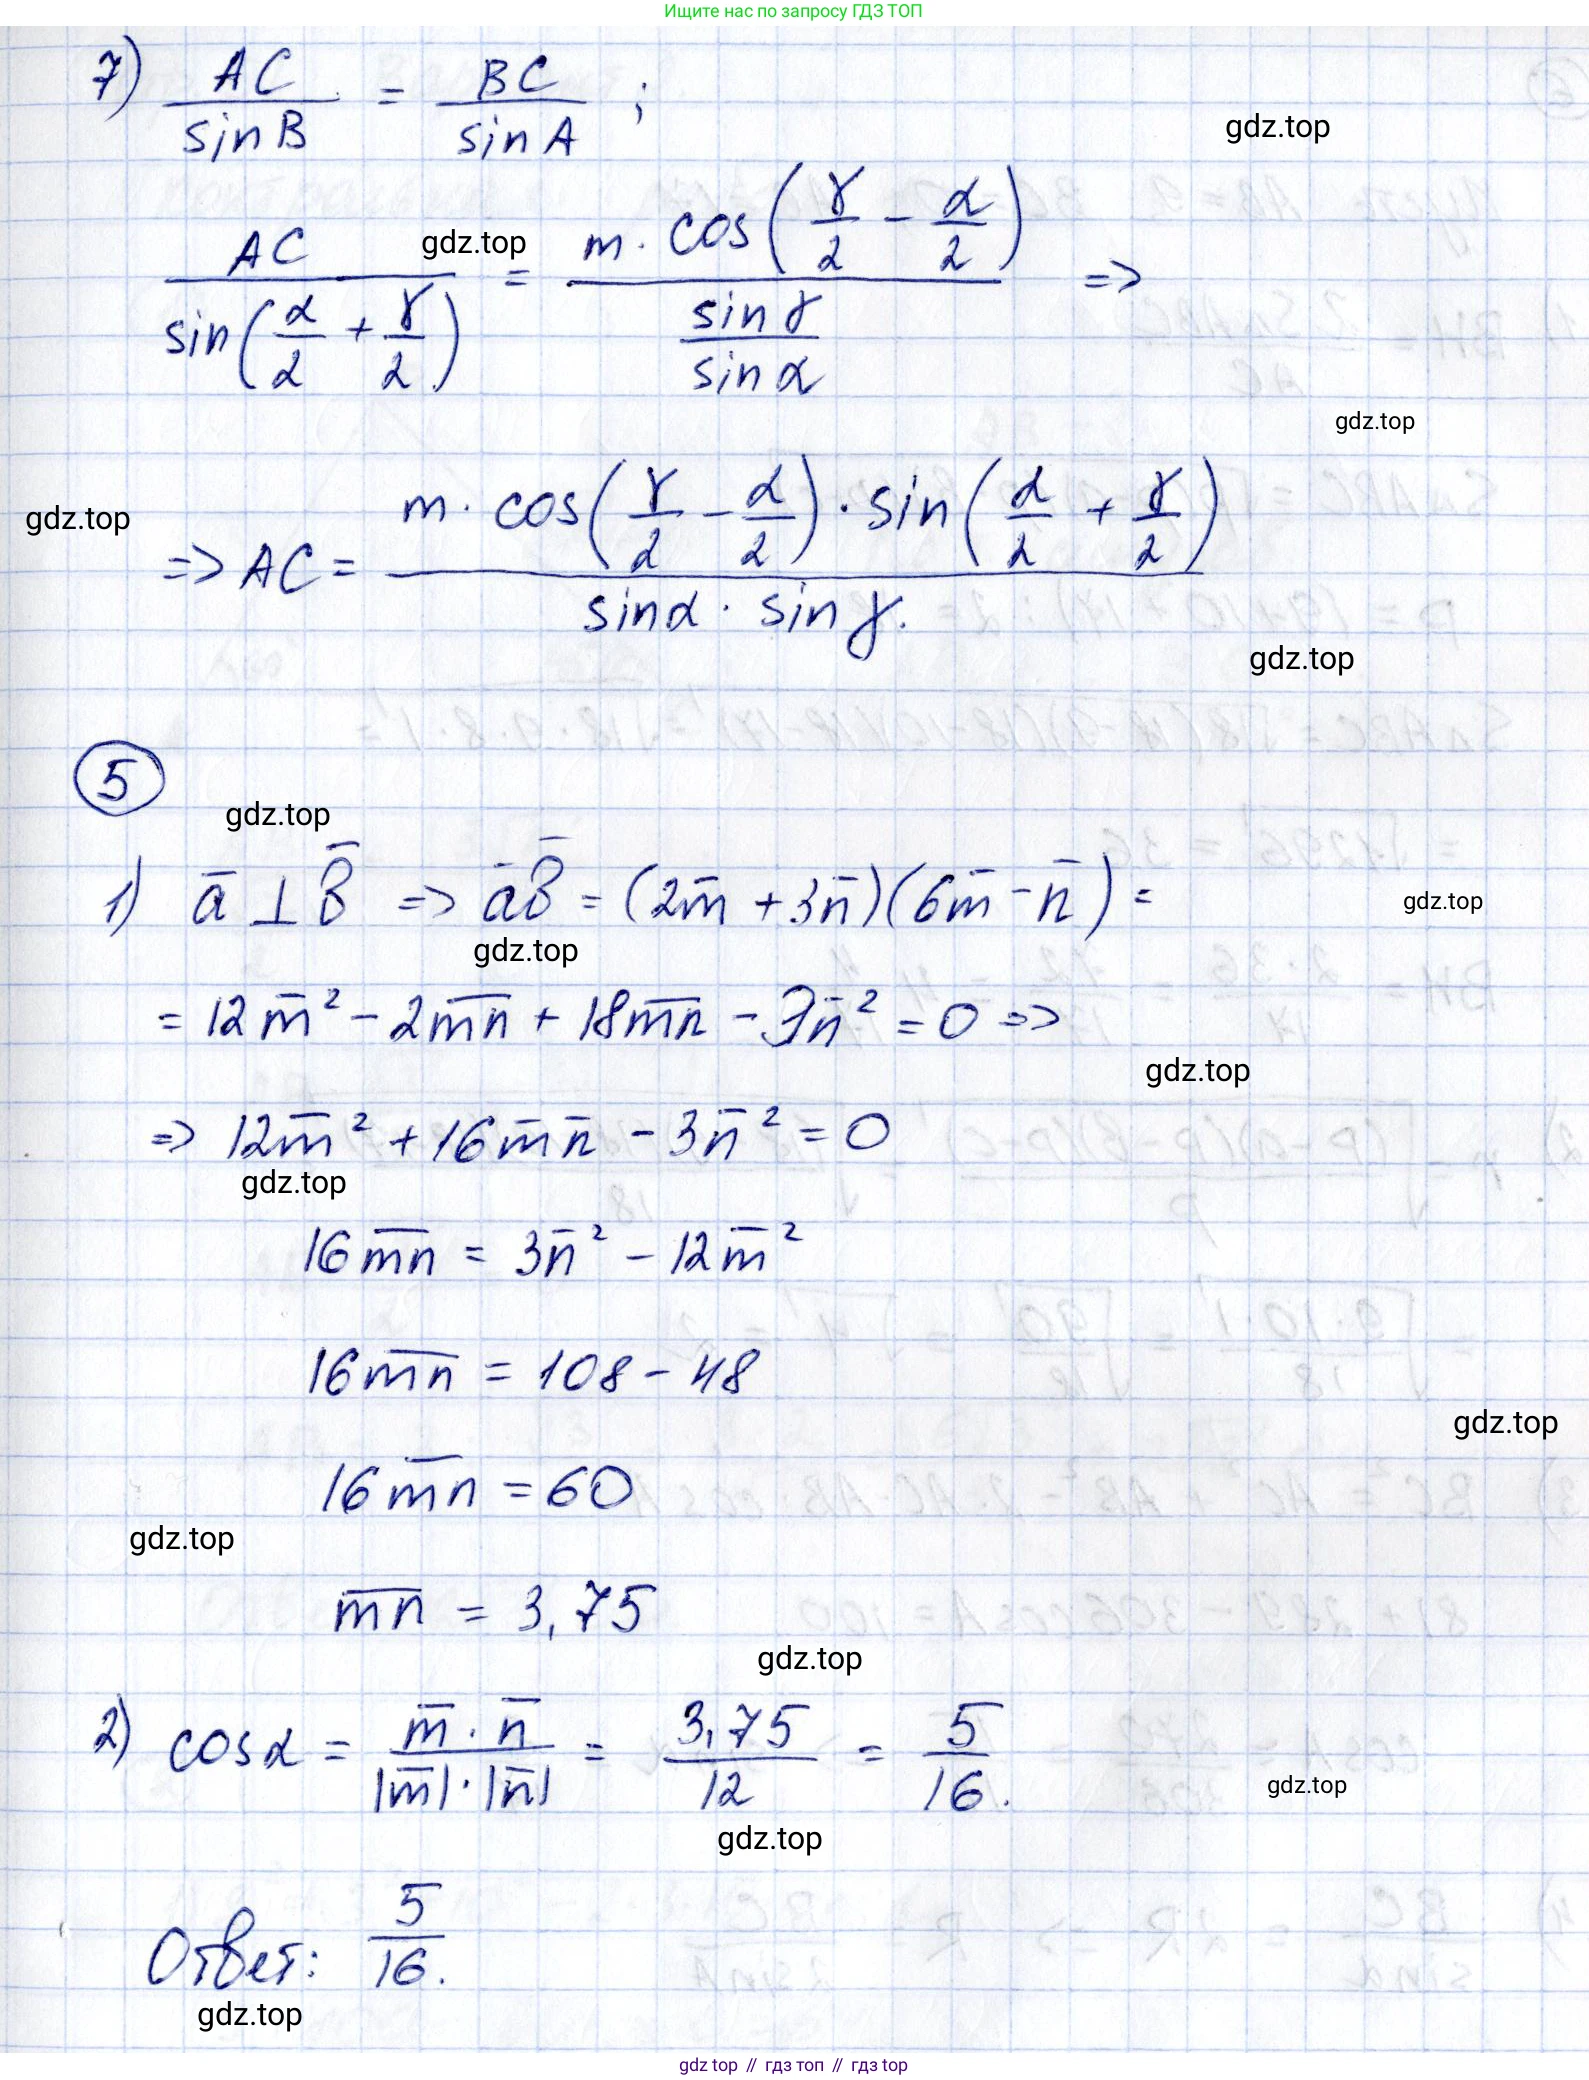 Ищите нас по запросу ГДЗ ТОП
7) AC / sin B = BC / sin A ;
gdz.top
AC / sin(α/2 + γ/2) = m · cos(γ/2 − α/2) / (sin γ / sin α) =>
gdz.top
gdz.top
=> AC = m · cos(γ/2 − α/2) · sin(α/2 + γ/2) / sin α · sin γ.
gdz.top
gdz.top
5
gdz.top
1) a̅ ⊥ b̅ => a̅b̅ = (2m̅ + 3n̅)(6m̅ − n̅) =
gdz.top
gdz.top
= 12m̅² − 2m̅n̅ + 18m̅n̅ − 3n̅² = 0 =>
gdz.top
=> 12m̅² + 16m̅n̅ − 3n̅² = 0
gdz.top
16m̅n̅ = 3n̅² − 12m̅²
16m̅n̅ = 108 − 48
gdz.top
16m̅n̅ = 60
gdz.top
m̅n̅ = 3,75
gdz.top
2) cos α = m̅ · n̅ / |m̅| · |n̅| = 3,75 / 12 = 5 / 16.
gdz.top
gdz.top
Ответ: 5 / 16.
gdz.top
gdz top // гдз топ // gdz top